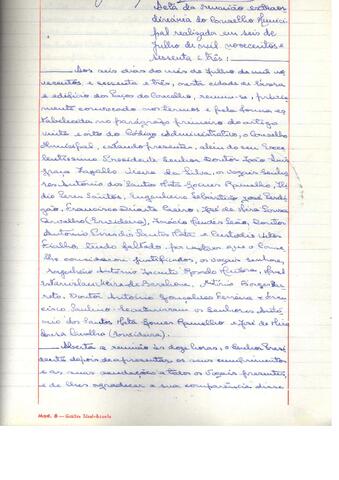 Acta da reunião extraor
dinária do Conselho Munici
pal realizada em seis de
Julho de mil novecentos e
sessenta e três:
Aos seis dias do mês de Julho de mil no
vecentos e sessenta e três, nesta cidade de Évora
e edifício dos Paços do Concelho, reuniu-se, prévia
mente convocado nos termos e pela forma es
tabelecida no parágrafo primeiro do artigo
vinte e oito do Código Administrativo, o Conselho
Municipal, estando presentes, além do seu Exce
lentíssimo Presidente Senhor Doutor João Luís
Vieira da Silva, os vogais Senho
res António dos Santos Mata Gomes Ramalho,
Peres Santos, Engenheiro Sebastião José Perdi
gão, Francisco Duarte Casero, José de
Carvalho (Enviadeira), Inácio Mendes Leão, Doutor
António Santos Mata e Custódio
tendo faltado, por razões que o Conse
lho considerou justificadas, os vogais senhores,
Engenheiro António Jacinto
Vieira de Barahona, António Borges Bar
reto, Doutor António Gonçalves Ferreira e Fran
cisco Paulino. Secretariaram os Senhores Antó
nio dos Santos Mata Gomes Ramalho e José de
Aberta a reunião às doze horas, o Senhor Presi
dente depois de apresentar os seus cumprimentos
e as suas saudações a todos os Vogais presentes,
e de lhes agradecer a sua comparência disse
Mod. 8 — Gráfica Éborense